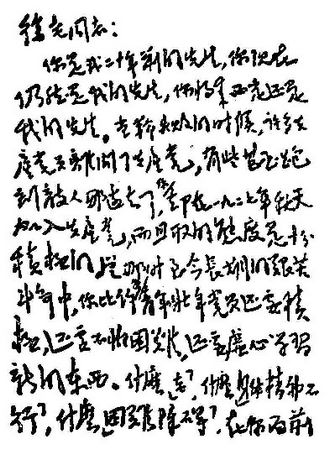 徐老同志：
你是我二十年前的先生，你現在
仍然是我的先生，你將來必定還是
我的先生。當革命失敗的時候，許多共
產黨員離開了共產黨，有些甚至跑
到敵人那邊去了，你卻在一九二七年秋天
加入共產黨，而且取的態度是十分
積極的。從那時至今長期的艱苦
鬥爭中，你比許多青年壯年黨員還要積
極，還要不怕困難，還要虛心學習
新的東西。什麼“老”，什麼“身體精神不
行”，什麼“困難障礙”，在你面前